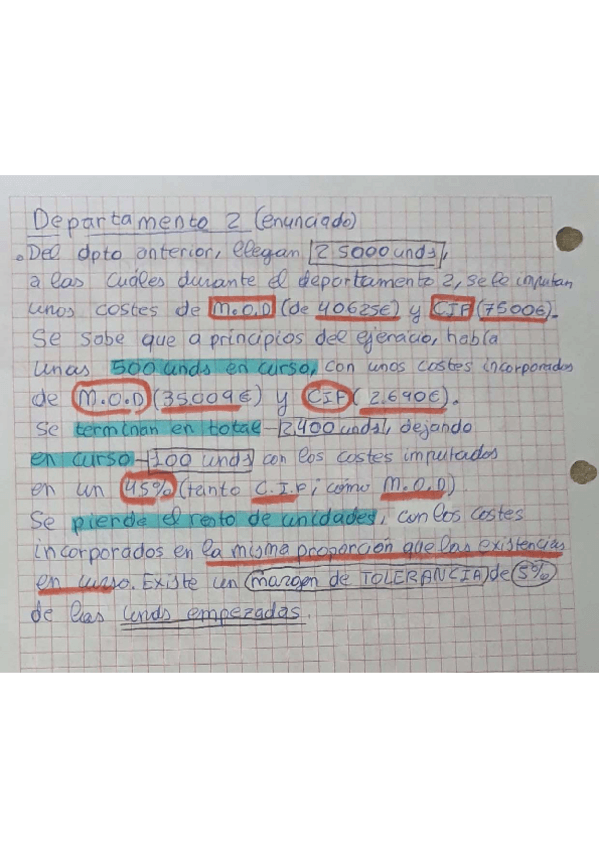 Departamento 2 (enunciado)
. Del dpto anterior, llegan 25000 unds,
a las cuáles durante el deportamento 2, se le imputan
unos costes de M.O.D (de 40625€) y CIF (7500€).
Se sabe que a principios del ejercicio, había
unas 500 unds en curso, con unos costes incorporados
de M.O.D (35009€) y CIF (2.690€).
Se terminan en total - 2,400 unds, dejando
en curso - 100 unds con los costes imputados
en un 45% (tanto C.I.F; como M.O.D)
Se pierde el resto de unidades, con los costes
incorporados en la misma proporción que las existencias
en curso. Existe un margen de TOLERANCIA de 5%
de las unds empezadas.